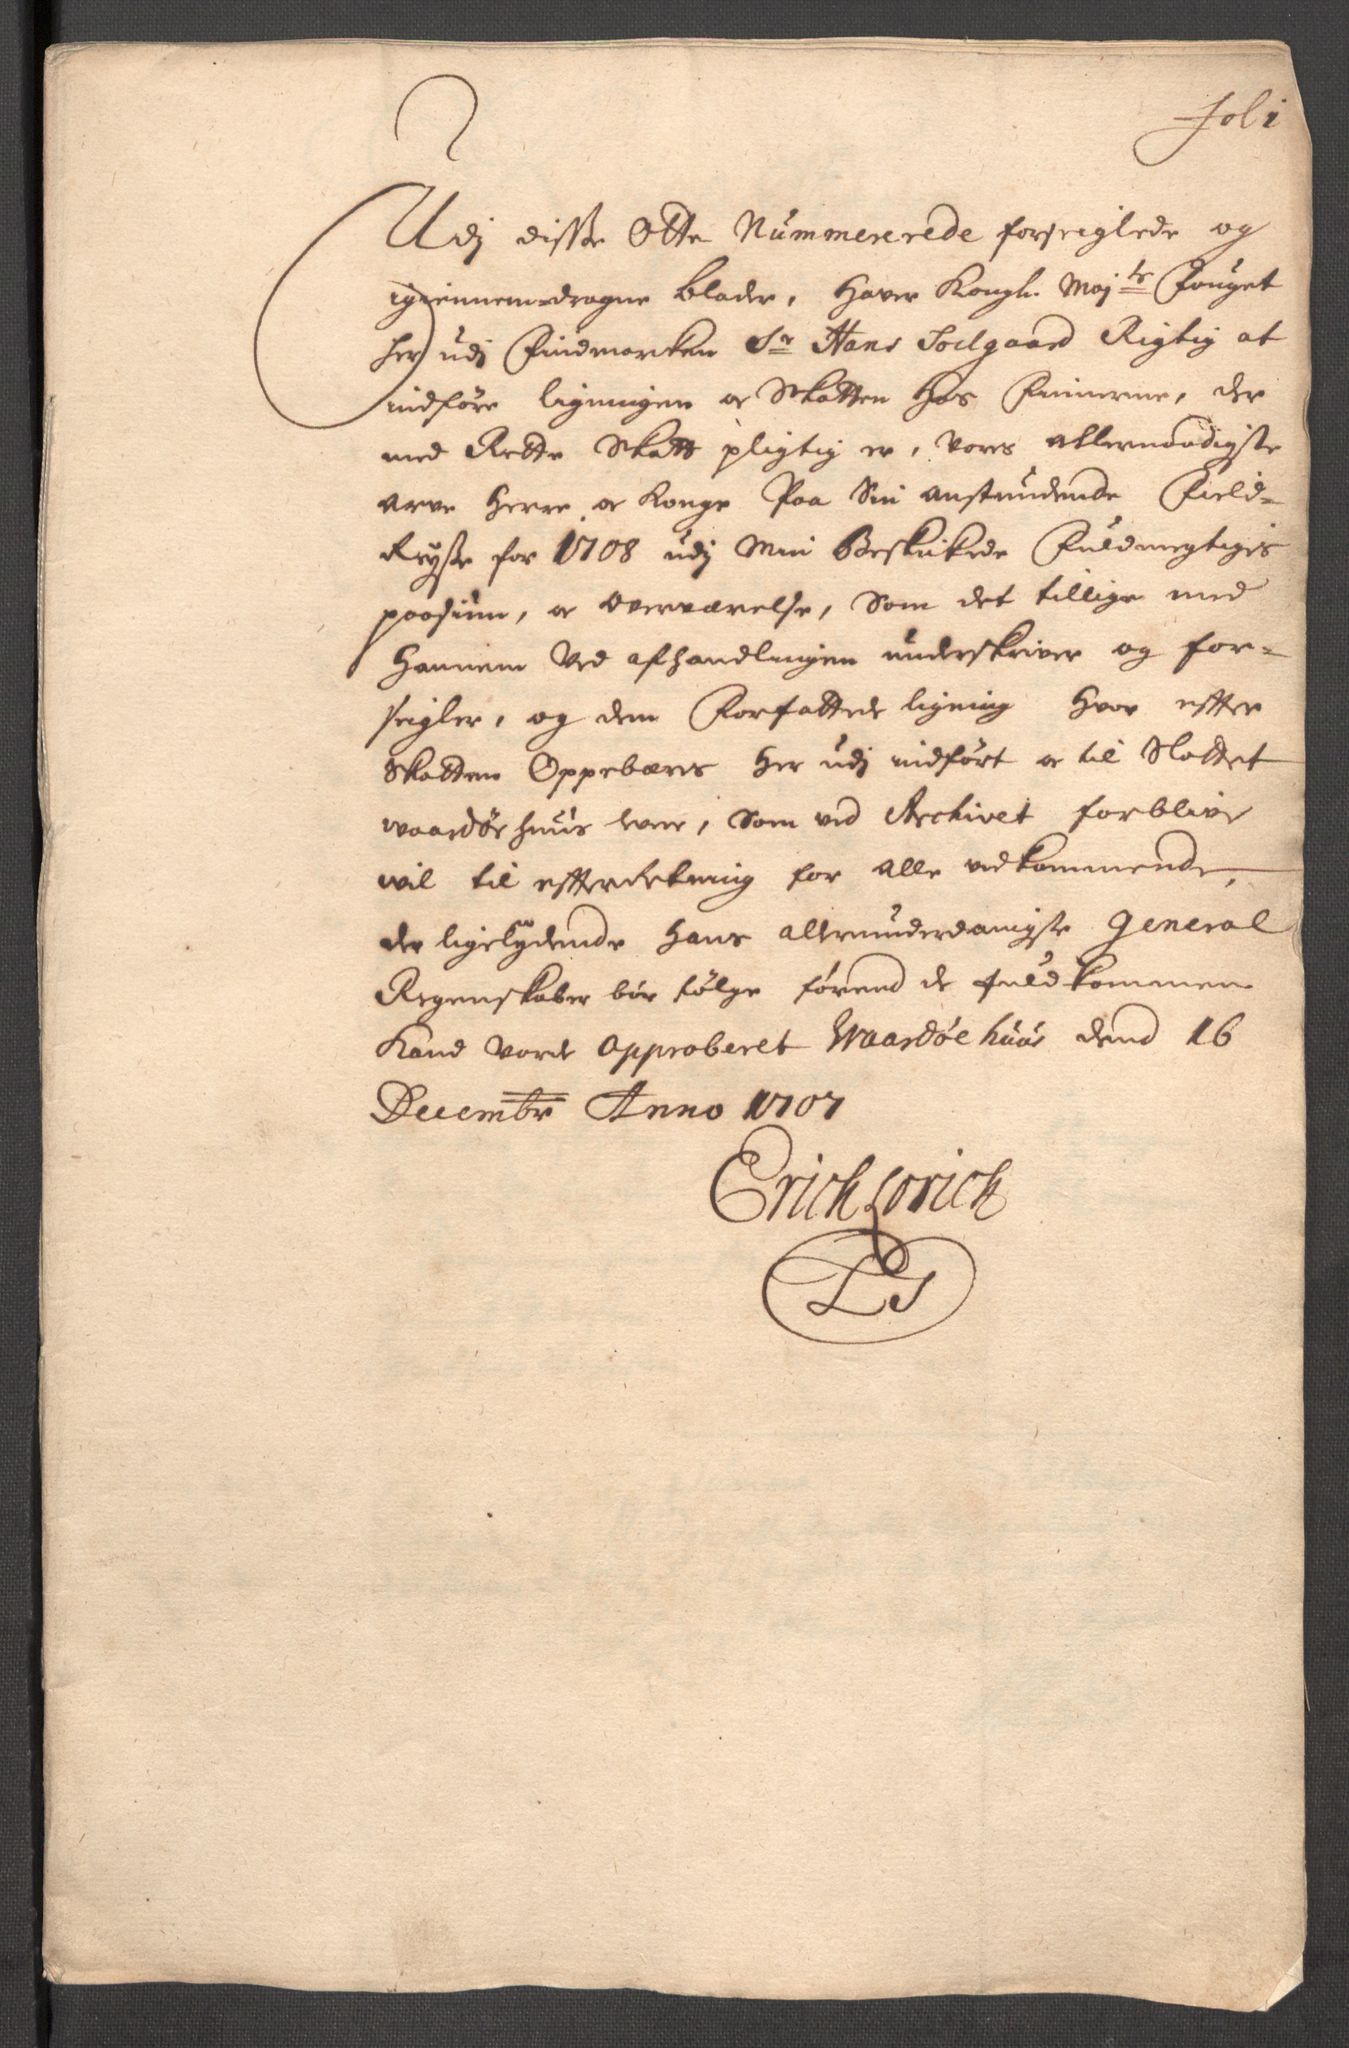 Fol 1
Udj disse Otte Nummererede forseiglede og
igiennem-dragne blader, haver Kongl. Maj:ts Fouget
her udj Findmarken Sr Hans Soelgaard Rigtig at
indføre ligningen or Skatten hos Finnerne, der
med Rette Skatt pligtig er, vores allernaadigste
arve Herre or Konge Paa Sin anstundende Field-
Reyse for 1708 udj Min Beskikede Fuldmegtiges
paasiun, or overværelse, Som det tillige med
hannem ved afhandlingen underskriver og for-
seigler, og dem Forfattede ligning hvor effter
Skatten Oppebæris her udj indført or til Slottet
waardøehuus lever, Som ved Archivet forblive
wil til effterretning for alle vedkommende,
der ligelydende hans allerunderdanigste General
Regenskaber bør følge førend de fuldkommen
Kand vorde Approberet Waardøehuus dend 16
Decembr Anno 1707
Erich Lorich
LS